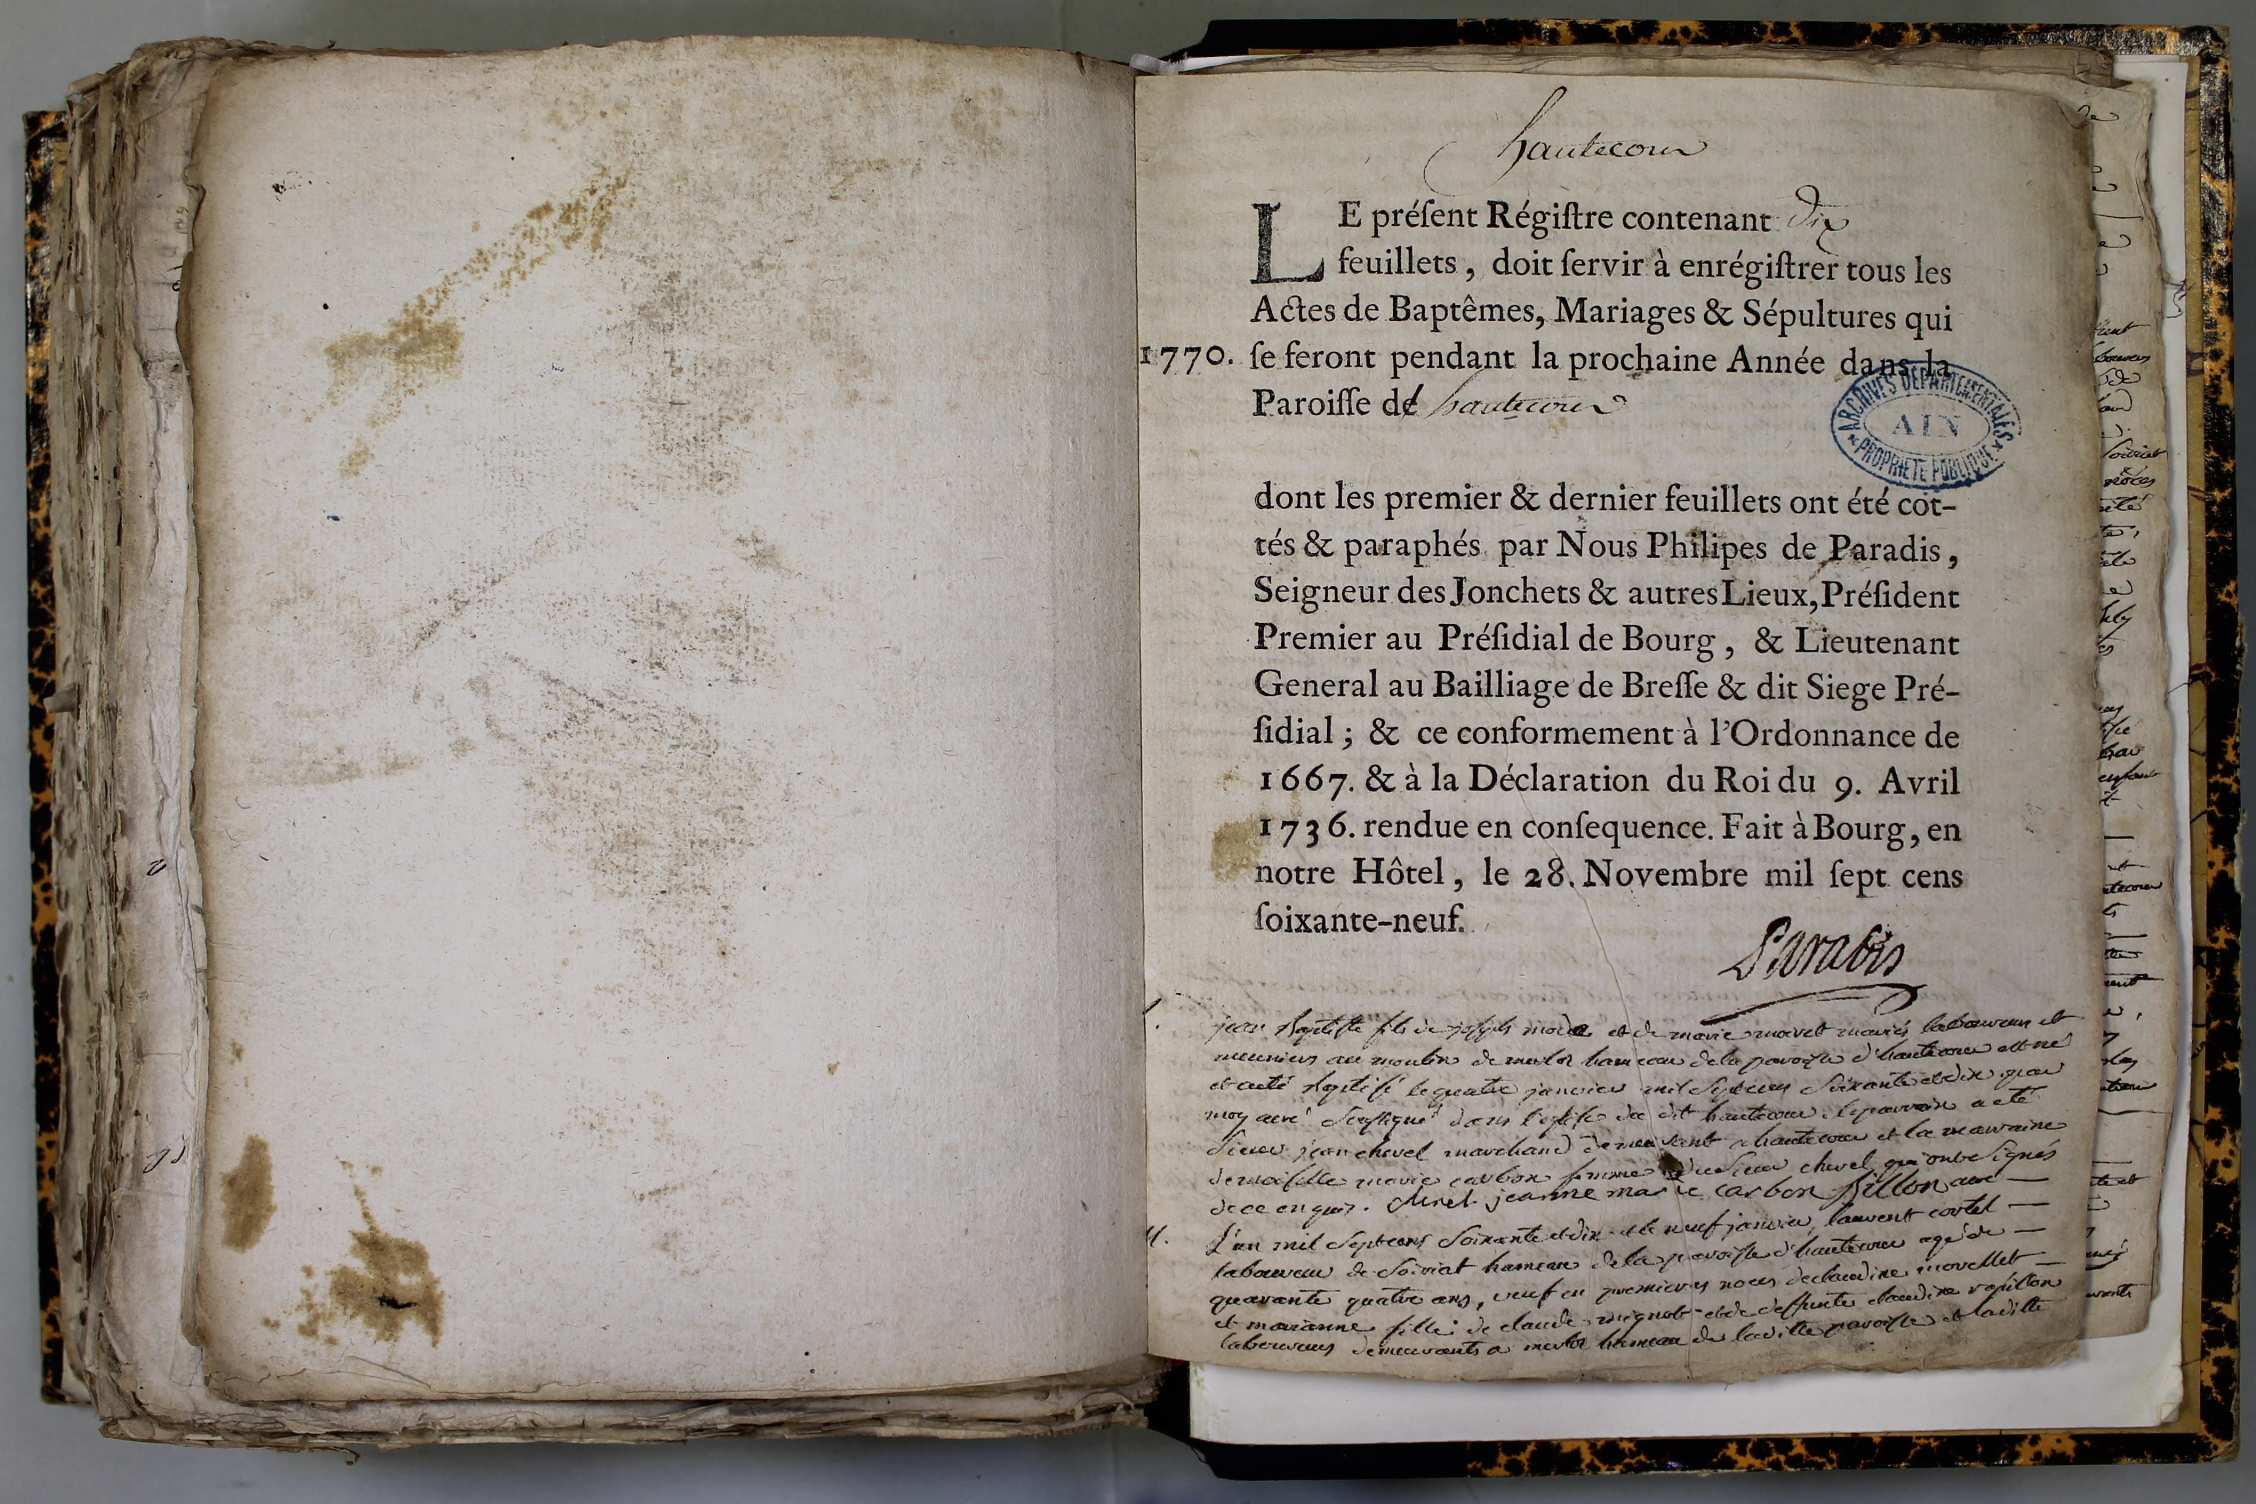 hautecour
LE préſent Régiſtre contenant dix
feuillets, doit ſervir à enrégiſtrer tous les
Actes de Baptêmes, Mariages & Sépultures qui
1770. ſe feront pendant la prochaine Année dans la
Paroiſſe de hautecour
ARCHIVES DEPARTEMENTALES
AIN
PROPRIETE PUBLIQUE
dont les premier & dernier feuillets ont été cot-
tés & paraphés par Nous Philipes de Paradis,
Seigneur des Jonchets & autres Lieux, Préſident
Premier au Préſidial de Bourg, & Lieutenant
General au Bailliage de Breſſe & dit Siege Pré-
ſidial; & ce conformement à l'Ordonnance de
1667. & à la Déclaration du Roi du 9. Avril
1736. rendue en conſequence. Fait à Bourg, en
notre Hôtel, le 28. Novembre mil ſept cens
ſoixante-neuf.
Paradis
jean baptiste fils de joseph et de marie mariés laboureurs et
meuniers au moulin de hameau de la paroisse d'hautecour est né
et a eté baptisé le quatre janvier mil sept cens soixante et dix par
moy curé soussigné dans l'eglise du dit hautecour le parrain a eté
sieur jean chevel marchand demeurant a hautecour et la marraine
demoiselle marie carbon femme du sieur chevel qui ont signés
de ce enquis. jeanne marie carbon curé
M. L'an mil sept cens soixante et dix et le neuf janvier laurent cortel
laboureur de Soiriat hameau de la paroisse d'hautecour agé de
quarante quatre ans, veuf en premieres noces de claudine
et marianne fille de claude mignot et de deffunte claudine
laboureurs demeurants a hameau de la dite paroisse et la ditte